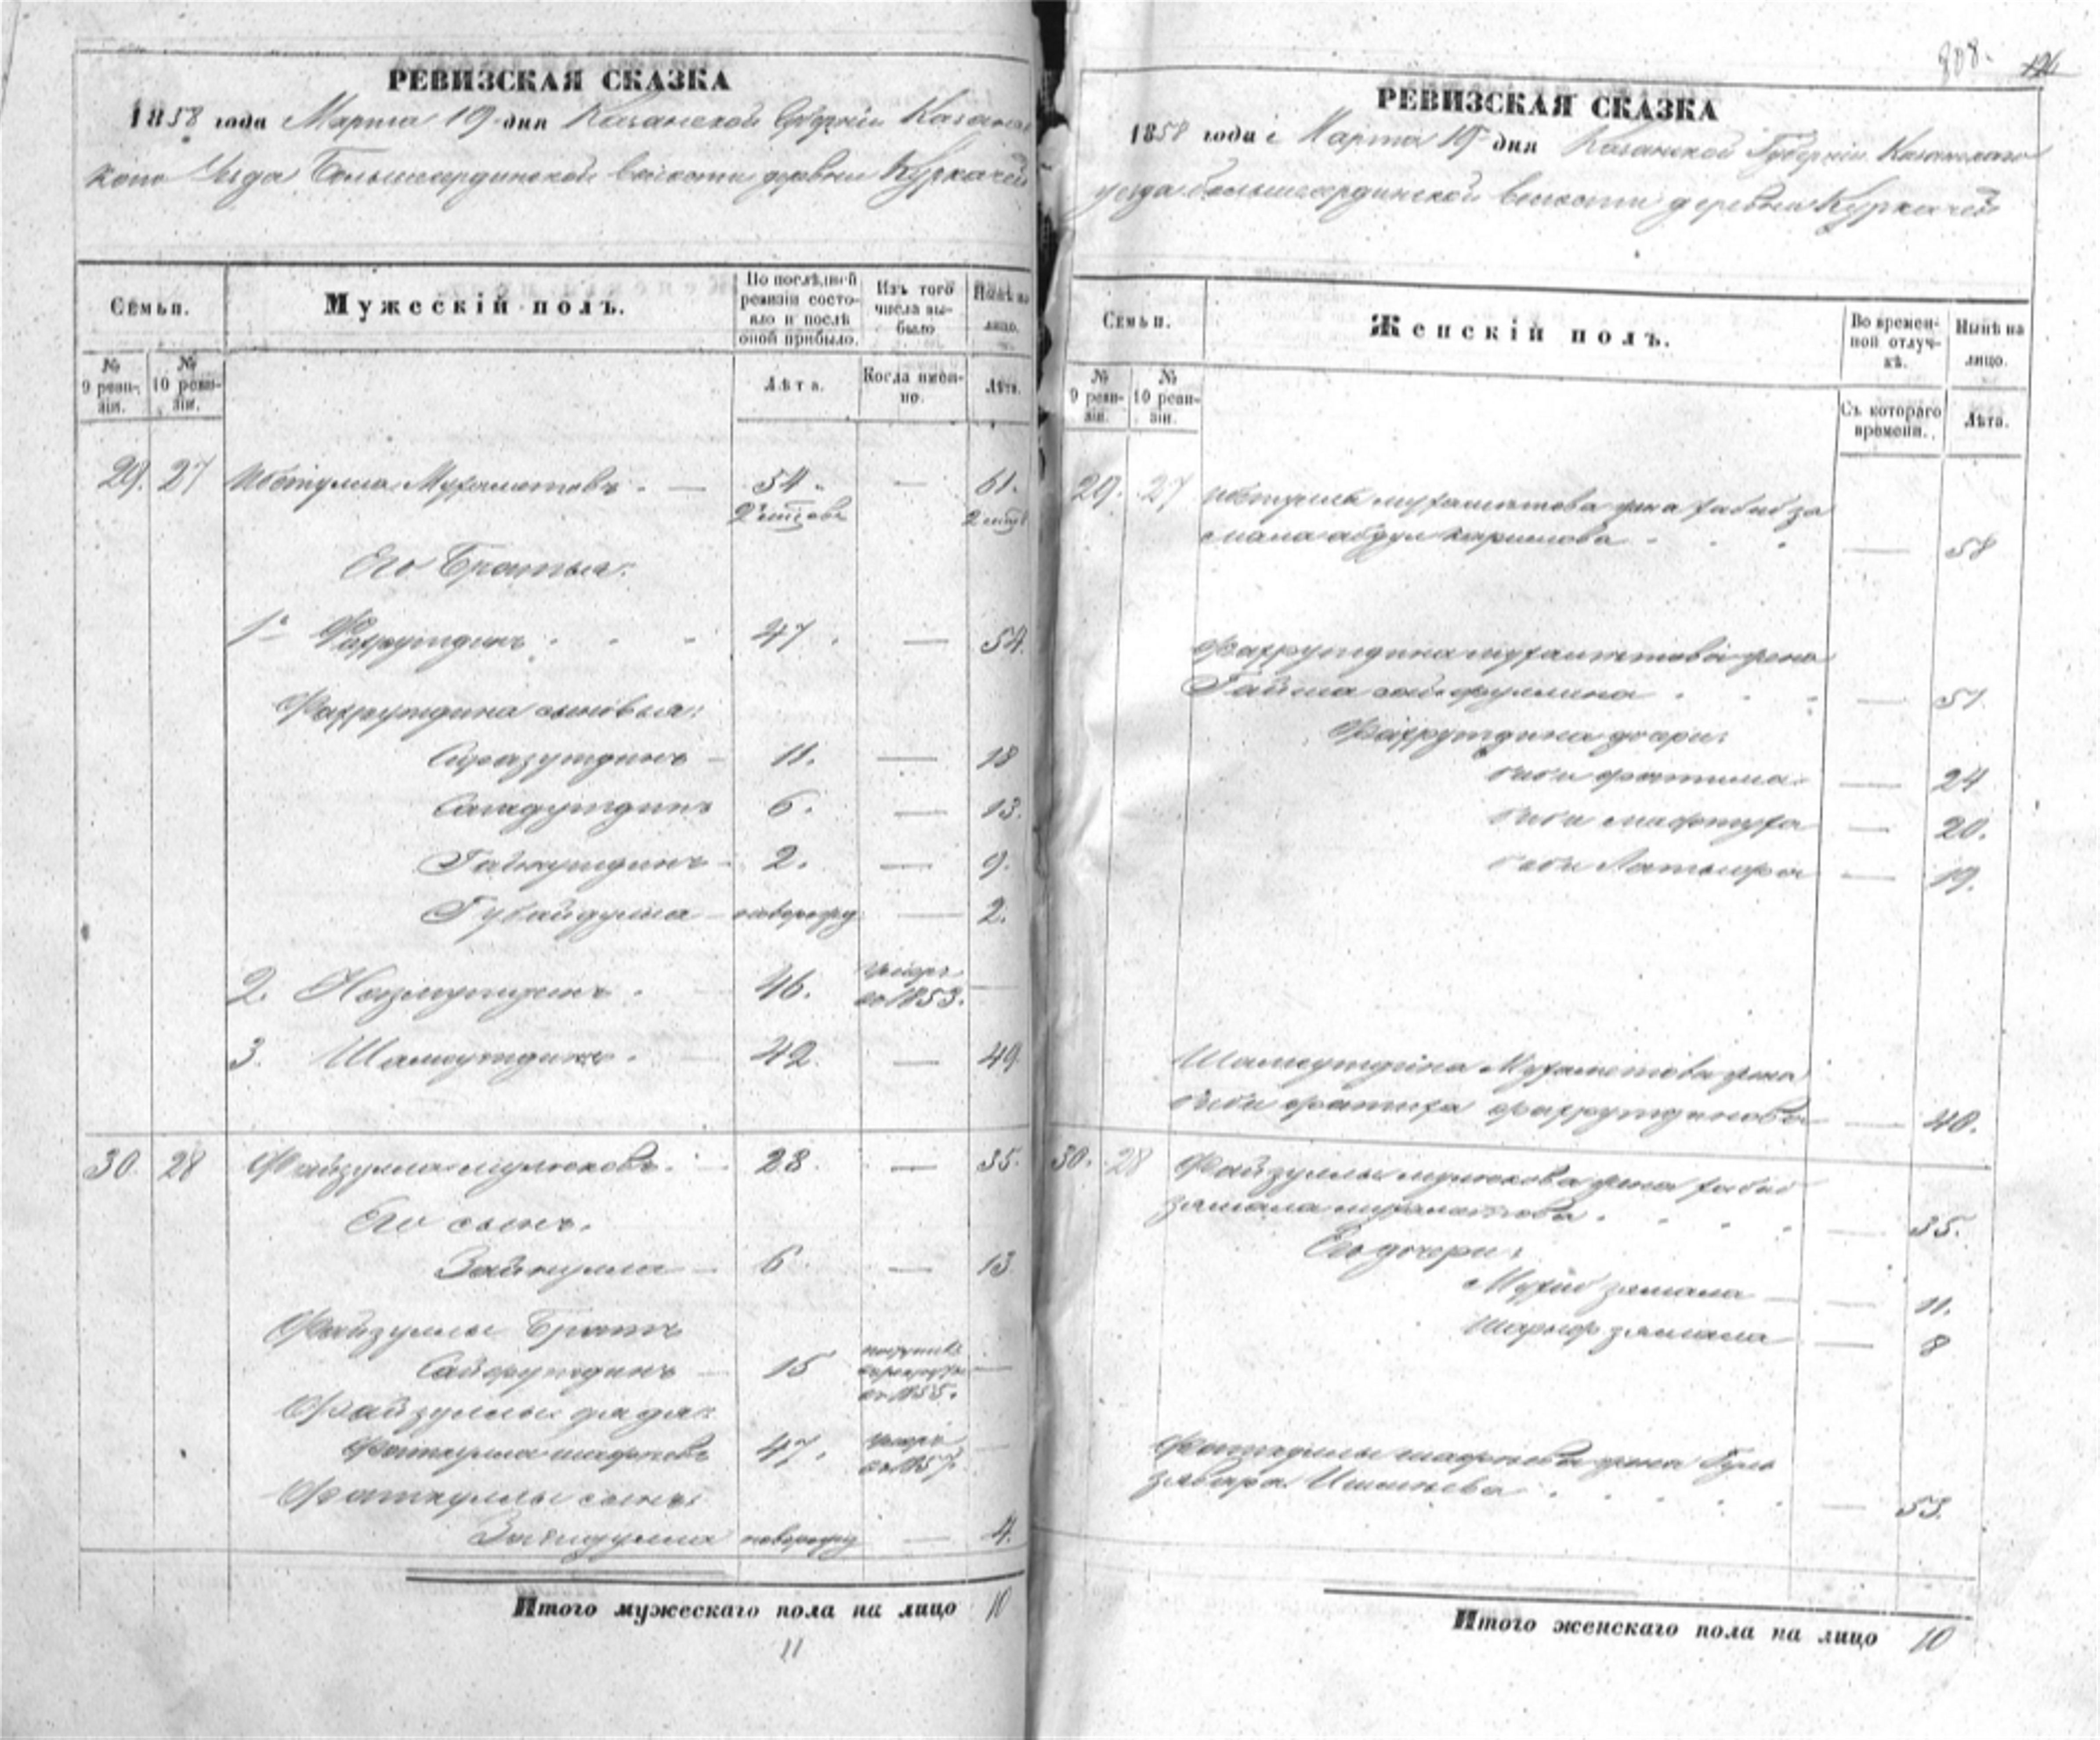 РЕВИЗСКАЯ СКАЗКА
1858 года Марта 19 дня Казанской Губерніи Казанс
каго Уезда Большеатрдинской волости деревни Куркачей
Семьи.
Мужескій полъ.
По послѣдней ревизіи состояло и послѣ оной прибыло.
Изъ того числа выбыло
Нынѣ на лицо.
№ 9 ревизіи.
№ 10 ревизіи.
Лѣта.
Когда именно.
Лѣта.
29. 27 Мухаметовъ. — 54. — 61.
Его Братья:
1й Фахрутдинъ 47. — 54.
Фахрутдина сыновья:
Сиразутдинъ — 11. — 18
Сагадутдинъ 6. — 13.
Гайнутдинъ — 2. — 9.
Губайдулла — новорожд — 2.
2. Назмутдинъ. 46. умеръ въ 1853. —
3. Шамсутдинъ. 42. — 49
30. 28 Файзулла мулюковъ. 28. — 35.
Его сынъ.
Зайнулла — 6 — 13
Файзуллы Братъ
Сайфутдинъ — 15 въ 1855. —
Файзуллы дядя:
Фаткулла 47. умеръ въ 1857. —
Фаткуллы сынъ:
новорожд — 4.
Итого мужескаго пола на лицо 10
11
808.
126
РЕВИЗСКАЯ СКАЗКА
1858 года Марта 19 дня Казанской Губерніи Казанскаго
уезда волости деревни Куркачей
Семьи.
Женскій полъ.
Во временной отлучкѣ.
Нынѣ на лицо.
№ 9 ревизіи.
№ 10 ревизіи.
Съ котораго времени.
Лѣта.
29. 27 мухаметова жена хабиб за
мала абдул каримова — 58
Фахрутдина мухаметова жена
Гайша сайфуллина — 51.
Фахрутдина дочери:
биби фатима — 24
биби мафтуха — 20.
биби — 19.
Шамсутдина Мухаметова жена
биби фатиха фахрутдинова — 40.
30. 28 Файзуллы мулюкова жена хабиб
замала мухаметова. — 35.
Его дочери:
замала — 11.
шариф замала — 8
Фаткуллы жена Гуль
— 53.
Итого женскаго пола на лицо 10